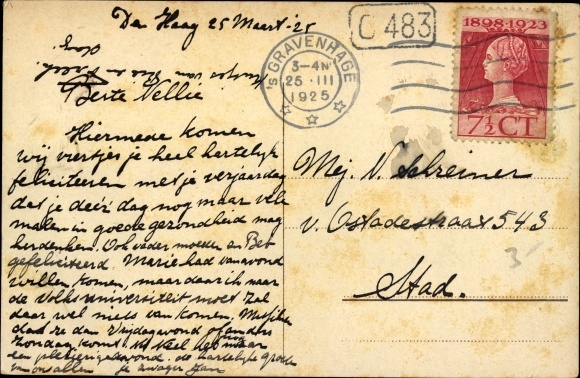 Den Haag 25 Maart '25
Beste Nellie
Hiermede komen
wij viertjes je heel hartelijk
feliciteeren met je verjaardag
dat je deze dag nog maar vele
malen in goede gezondheid mag
herdenken. Ook vader moeder en Bet
gefeliciteerd. Marie had vanavond
willen komen, maar daar ik naar
de Volksuniversiteit moet zal
daar wel niets van komen. Misschien
dat ze dan Vrijdagavond of anders
Zondag komt.
de hartelijke groeten
van ons allen je zwager Jan
C 483
'S GRAVENHAGE
3-4 N
25 III
1925
1898-1923
7½ CT
Mej. N. Schreiner
v. Ostadestraat 543
Stad.